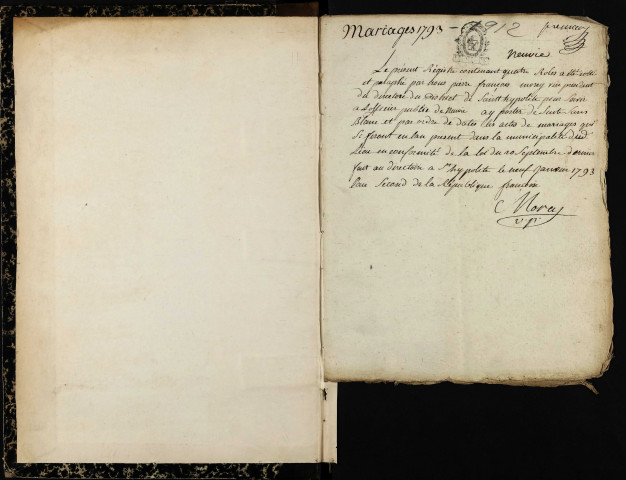 Mariages 1793 - 1912 premier
Neuvie
Le présent Régistre contenant quatre Roles a été cotté
et paraphé par Nous pierre françois vice president
du directoire du District de Saint hypolite pour servir
a Lofficier public de Neuvie a y porter de Suite sans
Blanc et par ordre de Dates les actes de mariages qui
Se feront en Lan present dans la municipalité dud
Lieu en conformité de la loi du 20 Septembre dernier
fait au directoire a St hypolite le neuf Janvier 1793
Lan Second de la République francoise
v. p.